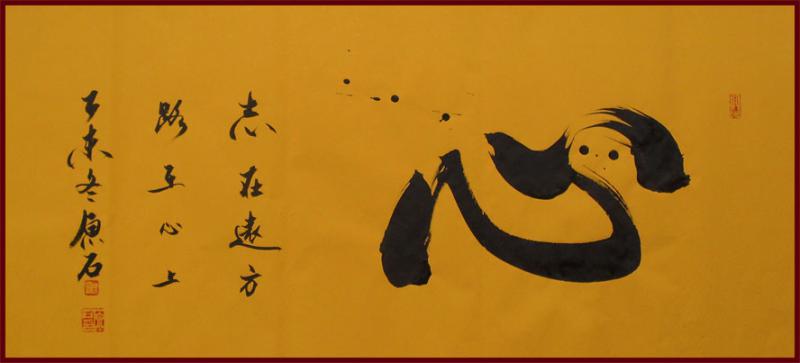 心
志在遠方
路在心上
乙未冬石